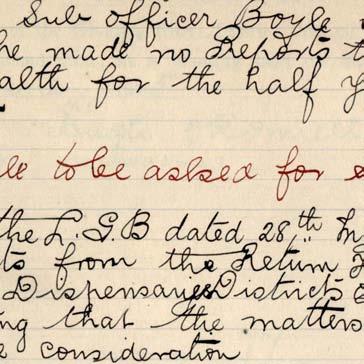 Sub officer Boyle
he made no Reports t
alth for the half y
le to be asked for e
the L. G. B dated 28th In
ts from the Return
Dispensaries Districts
ng that the matters
e consideration